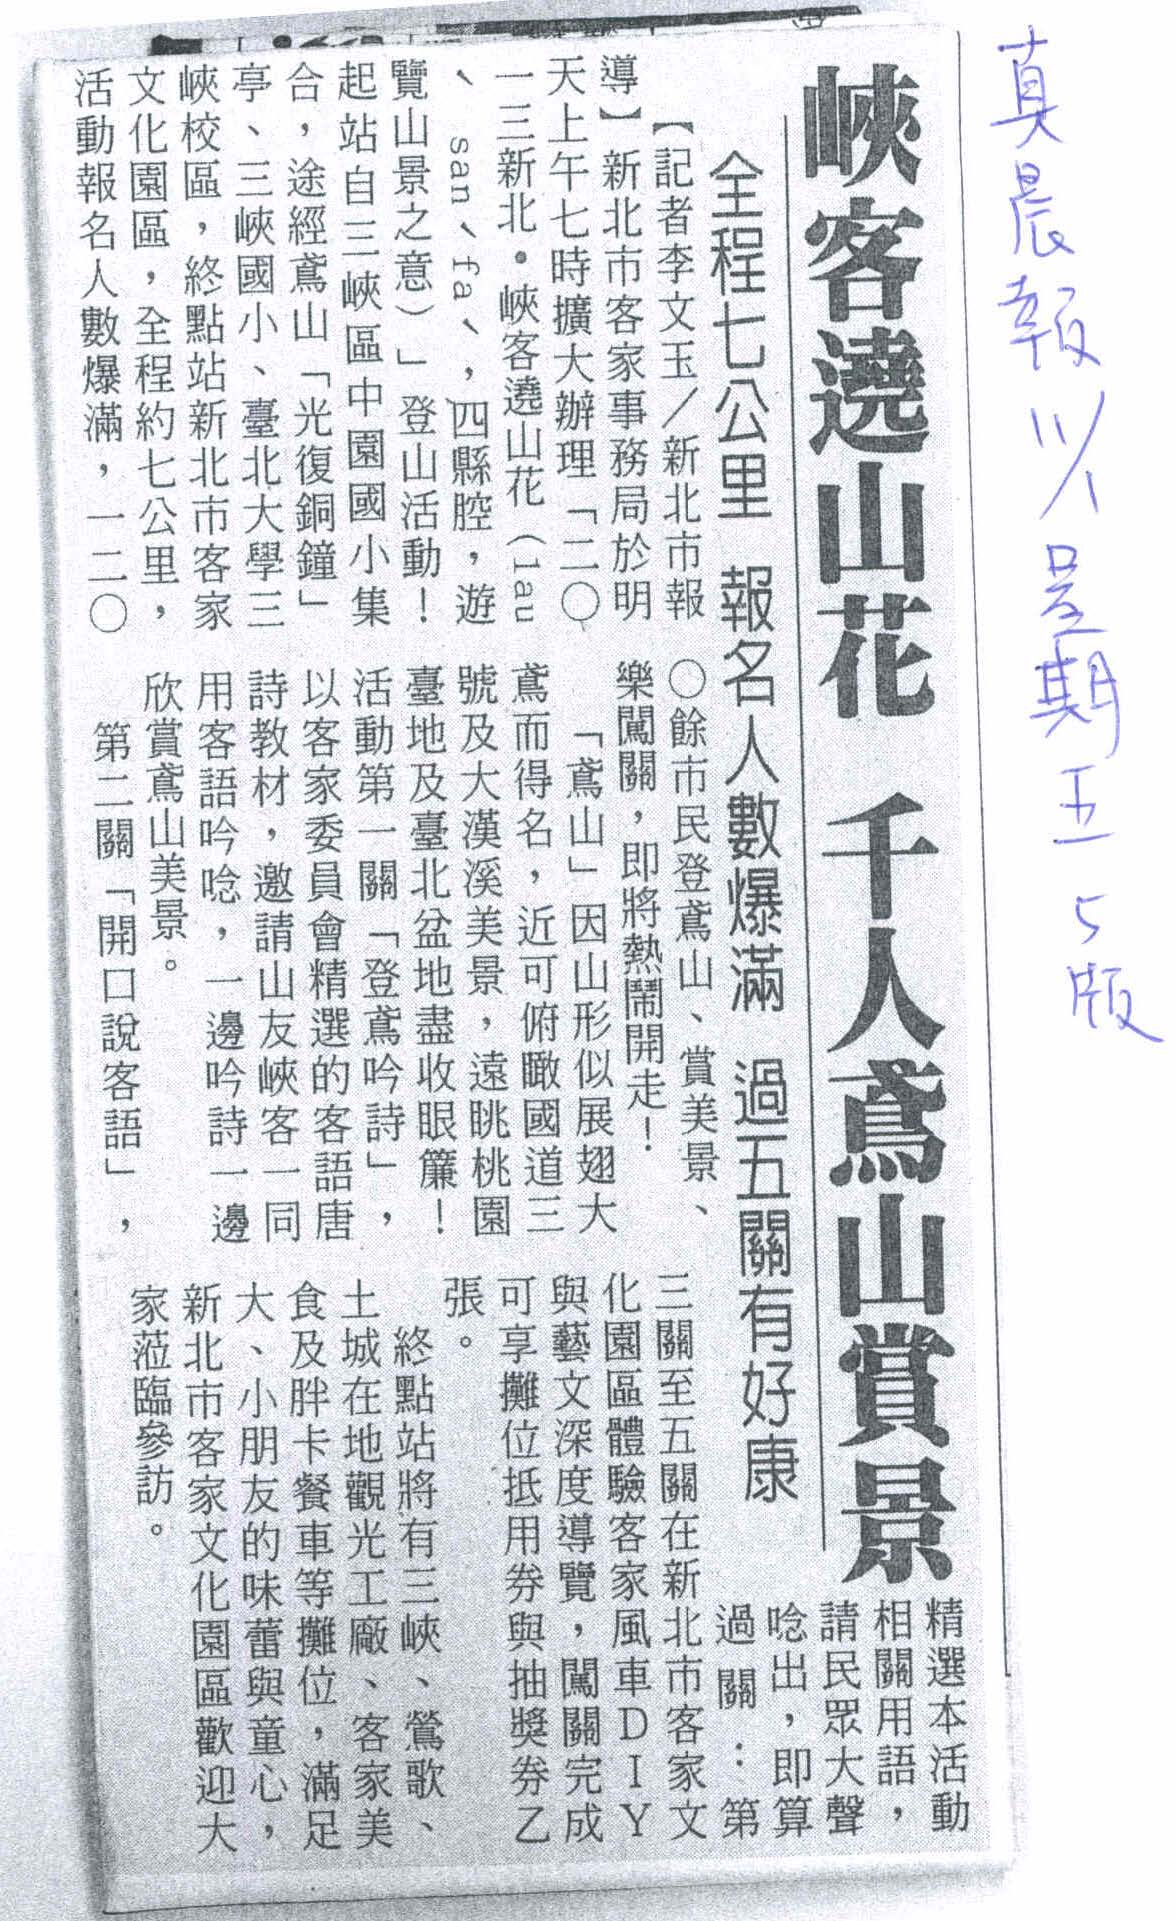 真晨報 11/8 星期五 5版
峽客遶山花 千人鳶山賞景
全程七公里 報名人數爆滿 過五關有好康
【記者李文玉／新北市報
導】新北市客家事務局於明
天上午七時擴大辦理「二○
一三新北•峽客遶山花（lau
ˋ sanˋ faˋ，四縣腔，遊
覽山景之意）」登山活動！
起站自三峽區中園國小集
合，途經鳶山「光復銅鐘」
亭、三峽國小、臺北大學三
峽校區，終點站新北市客家
文化園區，全程約七公里，
活動報名人數爆滿，一二○
○餘市民登鳶山、賞美景、
樂闖關，即將熱鬧開走！
「鳶山」因山形似展翅大
鳶而得名，近可俯瞰國道三
號及大漢溪美景，遠眺桃園
臺地及臺北盆地盡收眼簾！
活動第一關「登鳶吟詩」，
以客家委員會精選的客語唐
詩教材，邀請山友峽客一同
用客語吟唸，一邊吟詩一邊
欣賞鳶山美景。
第二關「開口說客語」，
精選本活動
相關用語，
請民眾大聲
唸出，即算
過關：第
三關至五關在新北市客家文
化園區體驗客家風車DIY
與藝文深度導覽，闖關完成
可享攤位抵用券與抽獎券乙
張。
終點站將有三峽、鶯歌、
土城在地觀光工廠、客家美
食及胖卡餐車等攤位，滿足
大、小朋友的味蕾與童心，
新北市客家文化園區歡迎大
家蒞臨參訪。